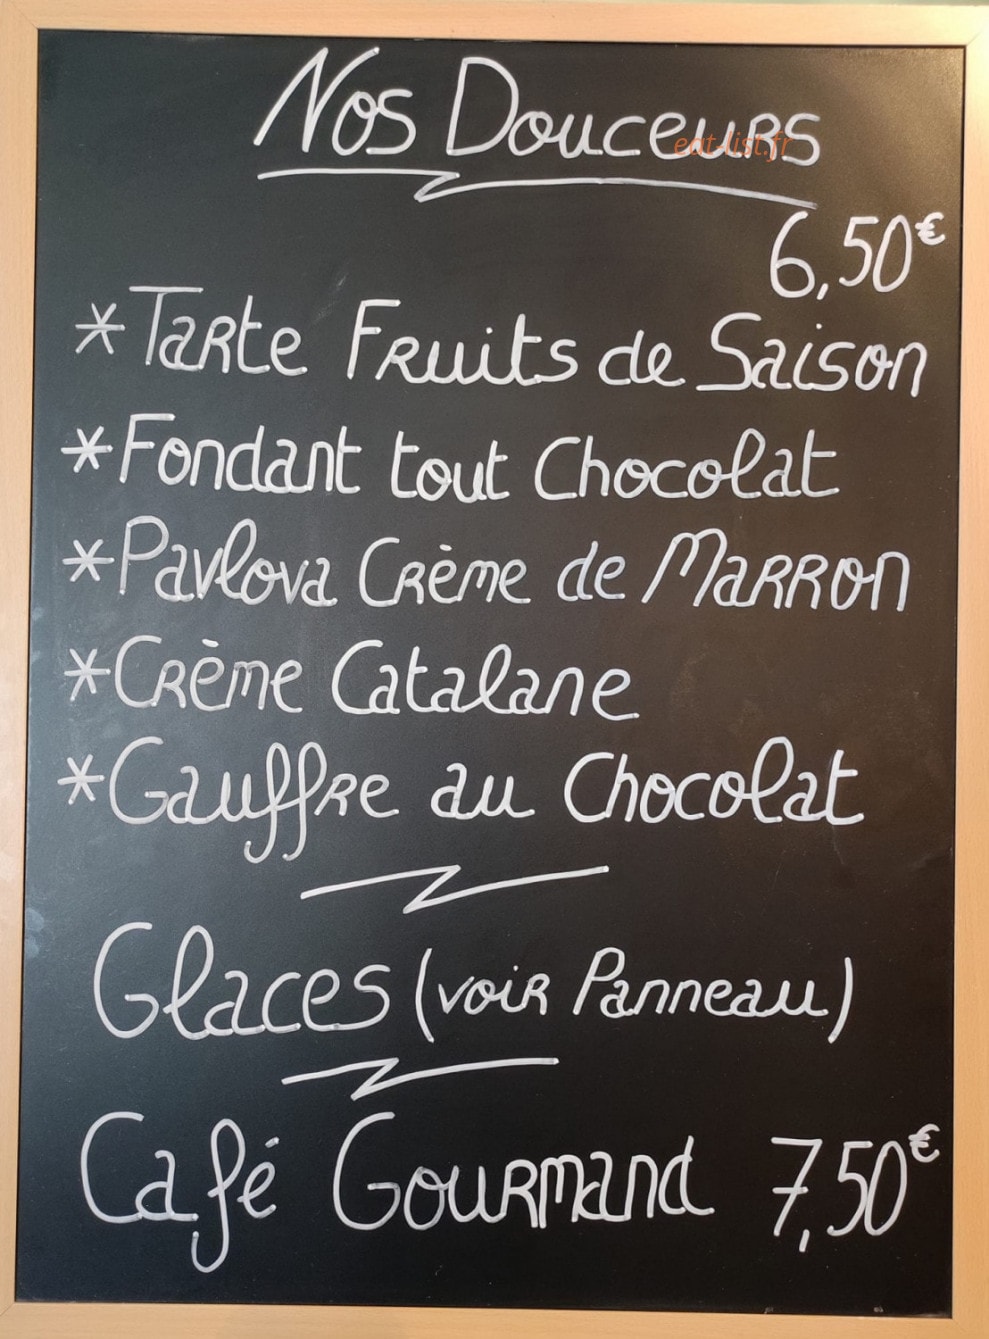 Nos Douceurs
eat-list.fr
6,50€
*Tarte Fruits de Saison
*Fondant tout Chocolat
*Pavlova Crème de Marron
*Crème Catalane
*Gauffre au Chocolat
Glaces (voir Panneau)
Café Gourmand 7,50€